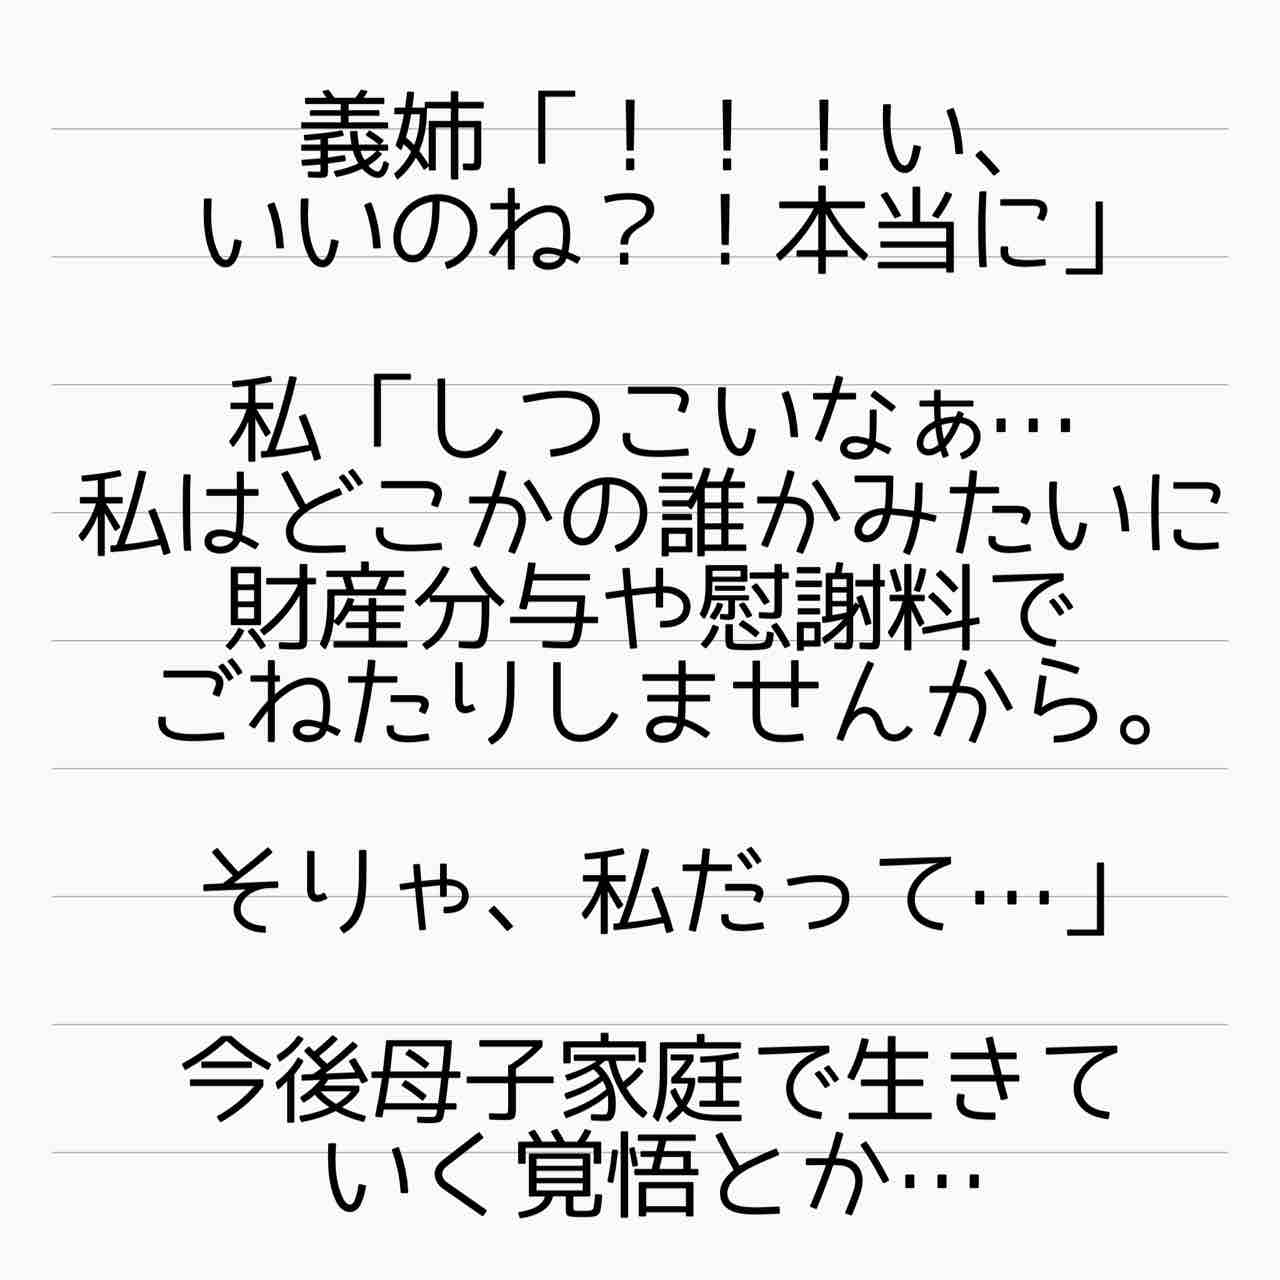 義姉「！！！い、
いいのね？！本当に」
私「しつこいなぁ…
私はどこかの誰かみたいに
財産分与や慰謝料で
ごねたりしませんから。
そりゃ、私だって…」
今後母子家庭で生きて
いく覚悟とか…